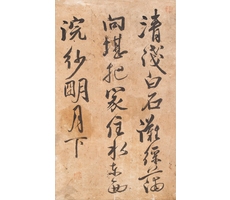 清淺白石灘綠蒲
向堪把家住水東西
浣紗明月下